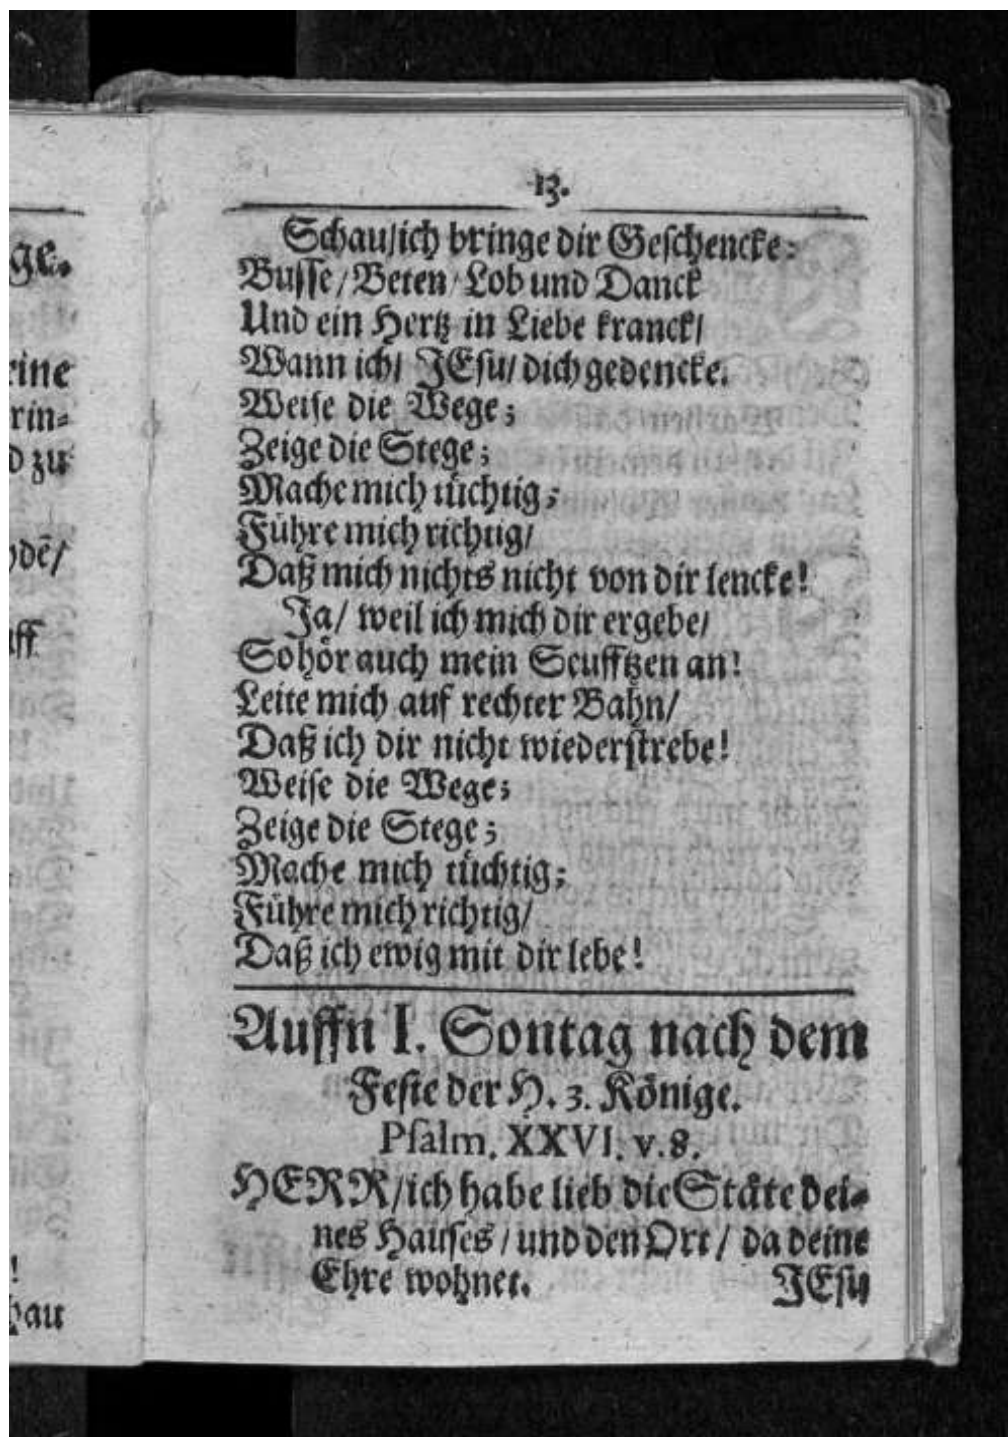 ge.
eine
rin-
d zu
dē/
ff
!
hau
13.
Schau/ich bringe dir Geschencke:
Busse/Beten/Lob und Danck
Und ein Hertz in Liebe kranck/
Wann ich/ JEsu/ dich gedencke.
Weise die Wege;
Zeige die Stege;
Mache mich tüchtig;
Führe mich richtig/
Daß mich nichts nicht von dir lencke!
Ja/ weil ich mich dir ergebe/
So hör auch mein Seufftzen an!
Leite mich auf rechter Bahn/
Daß ich dir nicht wiederstrebe!
Weise die Wege;
Zeige die Stege;
Mache mich tüchtig;
Führe mich richtig/
Daß ich ewig mit dir lebe!
Auffn I. Sontag nach dem
Feste der H. 3. Könige.
Psalm. XXVI. v. 8.
HERR/ich habe lieb die Stäte dei-
nes Hauses/und den Ort/ da deine
Ehre wohnet. JEsu